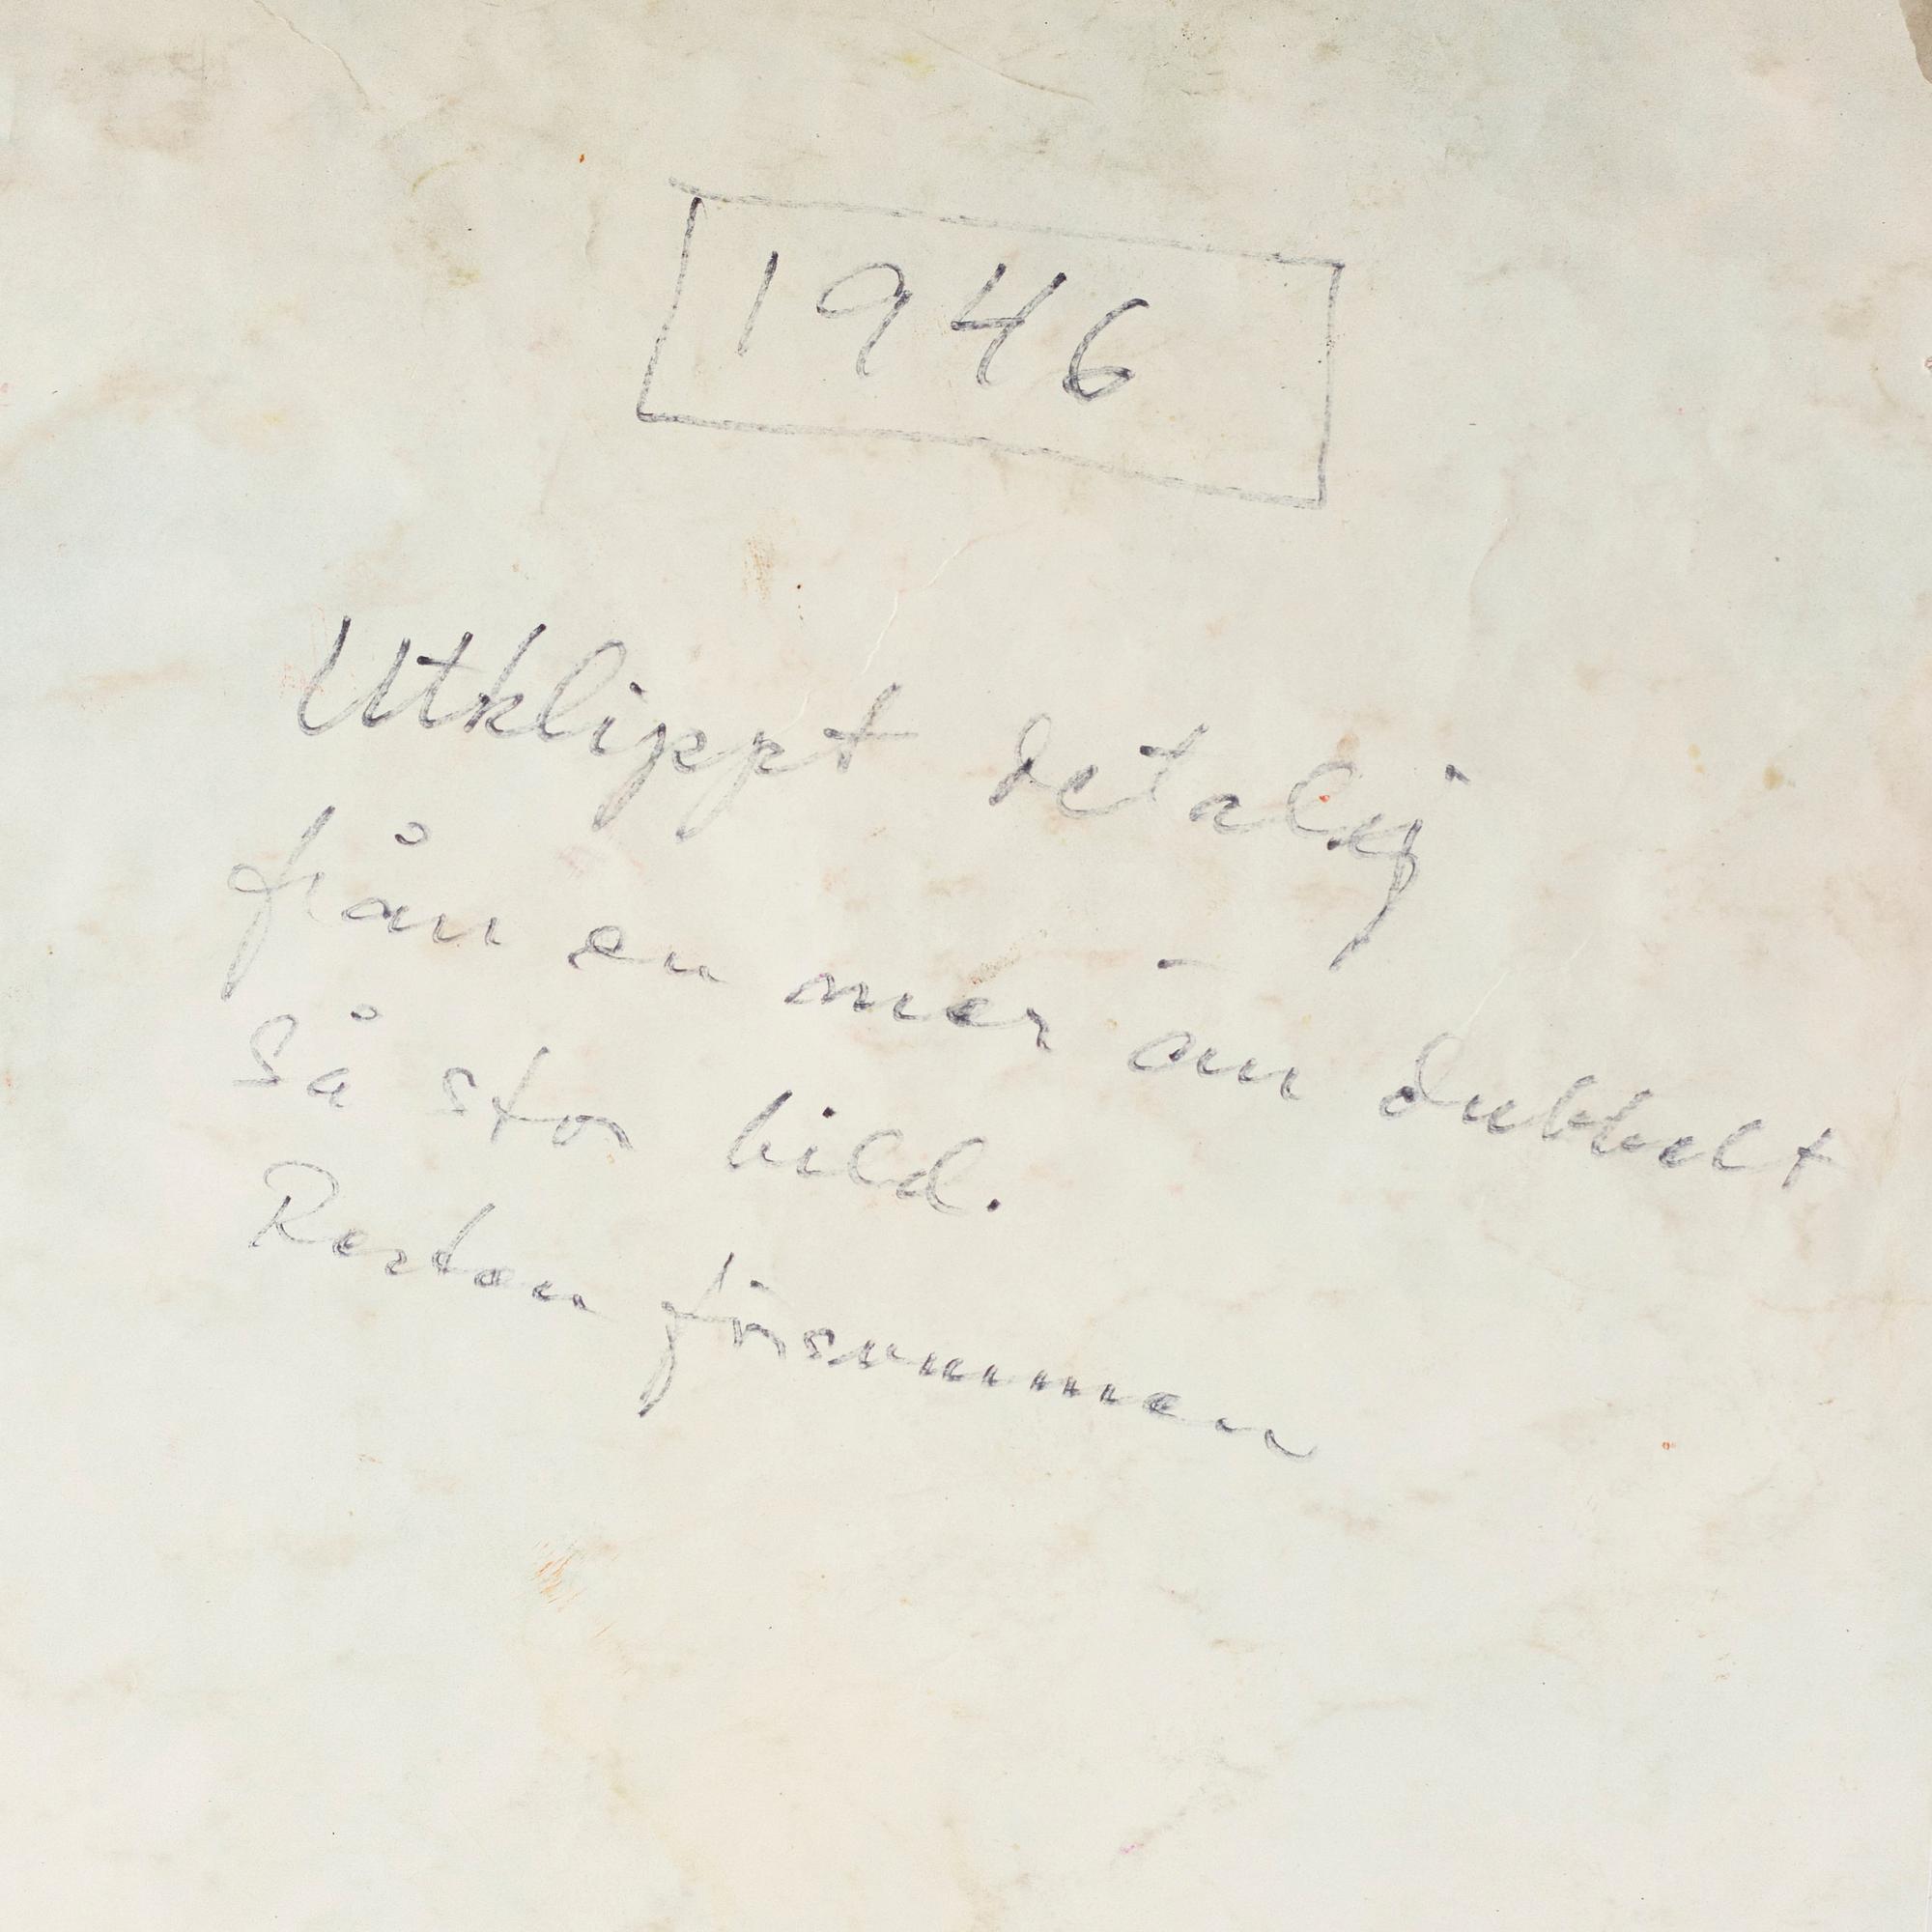 1946
Utklippt detalj
från en mer än dubbelt
så stor bild.
Resten försvunnen